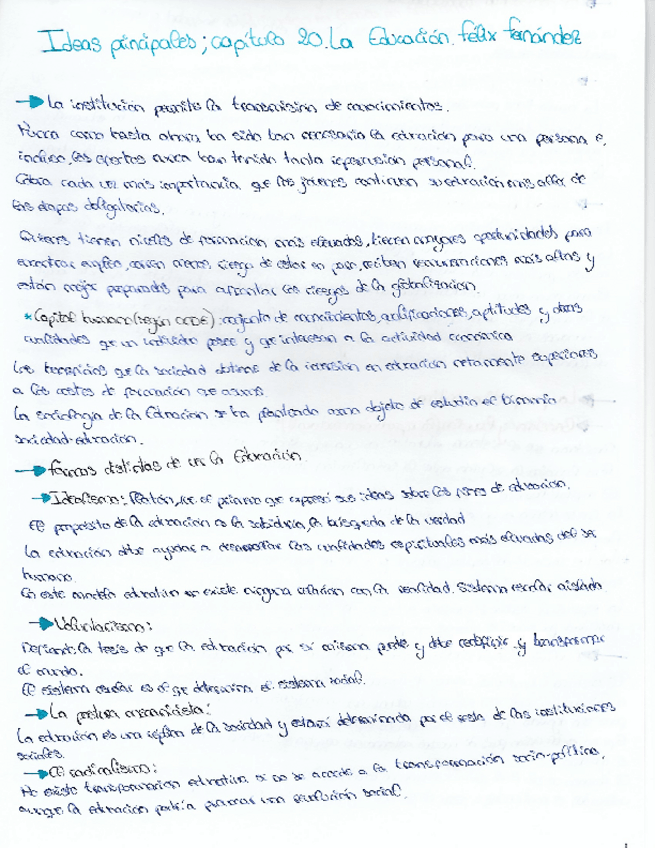 Ideas principales; capítulo 20. La Educación. félix fernández
→ La institución permite la transmisión de conocimientos.
Nunca como hasta ahora ha sido tan necesaria la educación para una persona e,
incluso, los efectos nunca han tenido tanta repercusión personal.
Cobra cada vez más importancia que los jóvenes continuen su educación más allá de
las etapas obligatorias.
Quienes tienen niveles de formación más elevados, tienen mayores oportunidades para
encontrar empleo, corren menos riesgo de estar en paro, reciben remuneraciones más altas y
están mejor preparados para afrontar los riesgos de la globalización.
* Capital humano (según OCDE): conjunto de conocimientos, cualificaciones, aptitudes y otras
cualidades que un individuo posee y que interesan a la actividad económica
Los beneficios que la sociedad obtiene de la inversión en educación netamente superiores
a los costes de formación que
La sociología de la Educación se ha planteado como objeto de estudio el binomio
sociedad-educación.
→ formas distintas de ver la Educación
→ Idealismo: Platón, fue el primero que expresó sus ideas sobre los fines de educación.
El propósito de la educación es la sabiduría, la búsqueda de la verdad
La educación debe ayudar a desarrollar las cualidades espirituales más elevadas del ser
humano.
En este modelo educativo no existe ninguna relación con la realidad. Sistema escolar aislado
→ Voluntarismo:
Defiende la tesis de que la educación por sí misma puede y debe rectificar y transformar
el mundo.
El sistema escolar es el que determina el sistema social.
→ La postura mecanicista:
La educación es una réplica de la sociedad y estará determinada por el resto de las instituciones
sociales.
→ El radicalismo:
No existe transformación educativa si no se accede a la transformación socio-política,
aunque la educación podría provocar una revolución social.